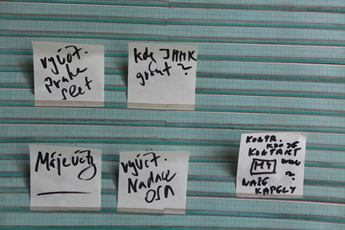 vyúčt.
Praha
SLET
kdy JMMK
grant ?
Májovičy
vyúčt.
Nadace
OSA
KONTR.
KDO JE
KONTAKT
MY WWW
?
NAŠE
KAPELY